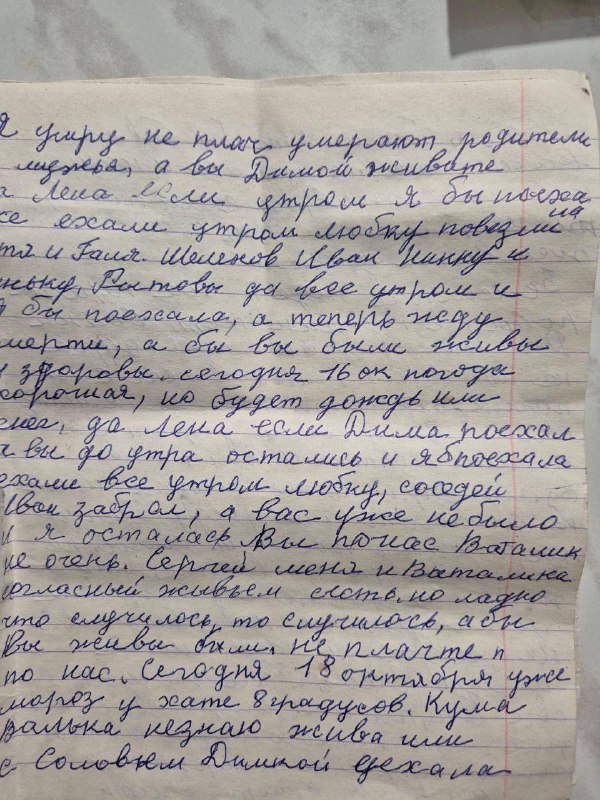 Я умру не плач умерают родители
а вы Димой живите
а Лена если утром я бы поеха
се ехали утром любку повезли на
тя и Галя. Шеленов Иван Нинку и
ньку, Рытовы да все утром и
я бы поехала, а теперь жду
мерти, а бы вы были живы
и здоровы. сегодня 16 ок погода
хорошая, но будет дождь или
снег, да Лена если Дима поехал
а вы до утра остались и я б поехала
ехали все утром любку, соседей
Иван забрал, а вас уже не было
и я осталась. Вы по нас Ваталик
не очень. Сергей меня и Ваталика
огласный живьем съесть, но ладно
что случилось, то случилось, а бы
Вы живы были. не плачте п
по нас. Сегодня 18 октября уже
мороз у хате 8 градусов. Кума
Валька незнаю жива или
с Соловьем Димкой уехала